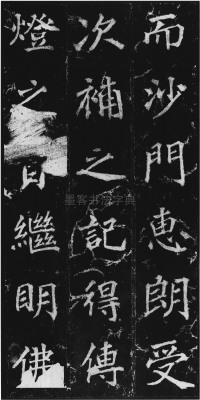 而沙門惠朗受
次補之記得傳
燈之日繼明佛
墨客书法字典